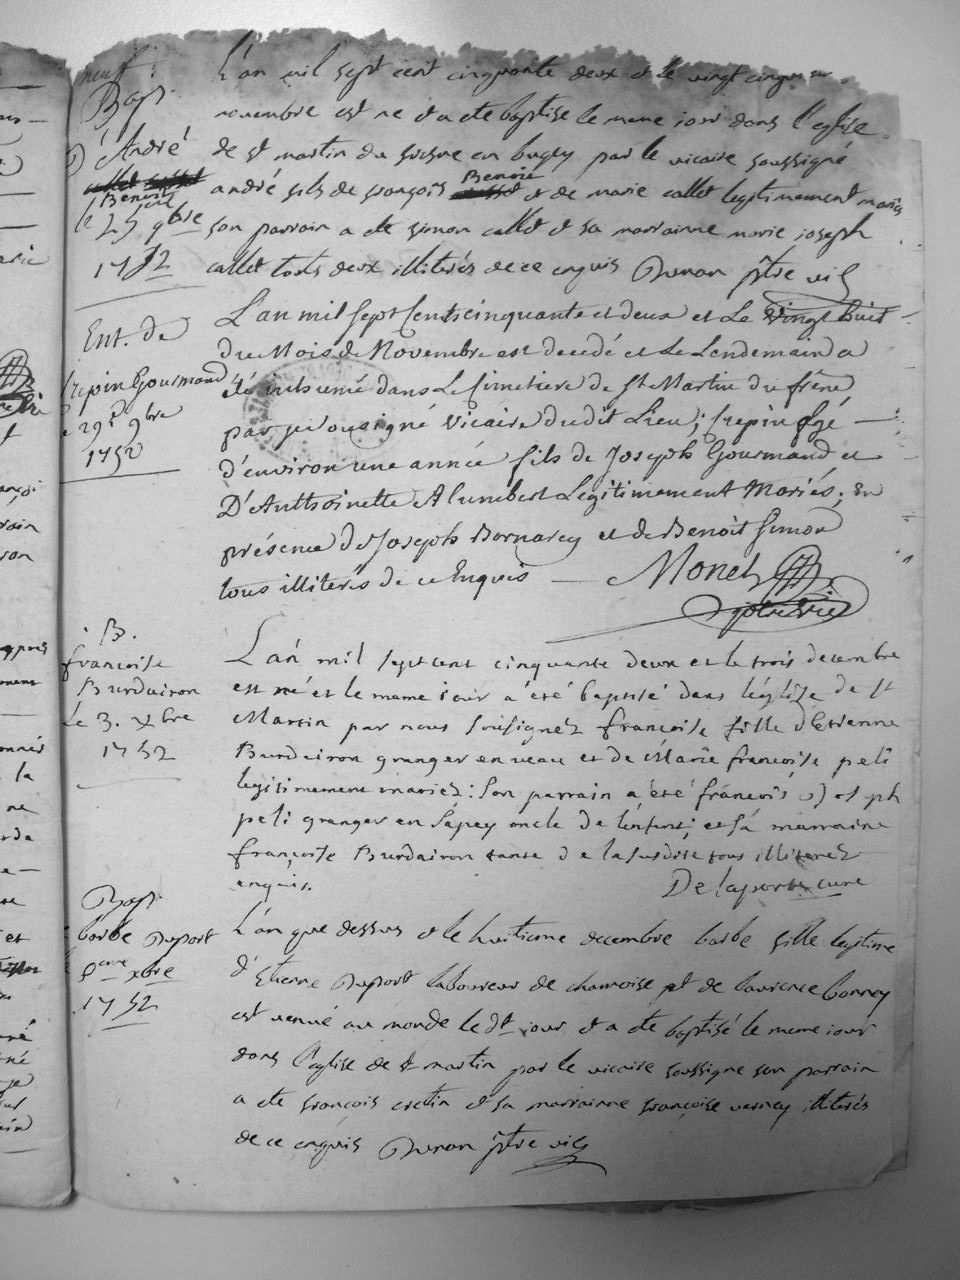 neuf
Bapt.
André
Benoit
le 25 9bre
1752
L'an mil sept cent cinquante deux et le vingt cinq
novembre est ne et a ete baptise le meme jour dans l'eglise
de st martin du fresne en bugey par le vicaire soussigné
andré fils de françois Benoit et de marie callet legitimement mariés
son parrain a ete simon callet et sa marrainne marie joseph
callet touts deux illiterés de ce enquis Duran ptre vic
Ent. de
Crepin Gourmand
le 29e 9bre
1752
L'an mil sept Cents cinquante et deux et Le Vingt huit
du Mois de Novembre est decedé et Le Lendemain a
été inhumé dans Le Cimetiere de St Martin du frêne
par je sousigné Vicaire dudit Lieu; Crepin âgé
d'environ une année fils de Joseph Gourmand et
D'Anthoinette Alumbert Legitimement Mariés; En
présence de Joseph Bornarey et de Benoit Simon
tous illiterés de ce Enquis Monet
ptre Vic
B.
francoise
Burdairon
Le 3. xbre
1752
L'an mil sept cent cinquante deux et le trois decembre
est né et le meme iour a été baptisé dans léglise de st
Martin par nous sousignez francoise fille d'Etienne
Burdairon granger en veau et de Marie francoise peli
legitimement mariez: son parrain a été francois joseph
peli granger en Sapey oncle de lenfant; et sa marraine
francoise Burdairon tante de la susdite tous illiterez
enquis. Delaporte curé
Bapt.
barbe Duport
8eme xbre
1752
L'an que dessus et le huitieme decembre barbe fille legitime
d'Etienne Duport laboureur de chamoise et de laurence bonney
est venue au monde le dt jour et a ete baptisé le meme iour
dans l'eglise de st martin par le vicaire soussigné son parrain
a ete françois cretin et sa marrainne françoise verney illiterés
de ce enquis Duran ptre vic